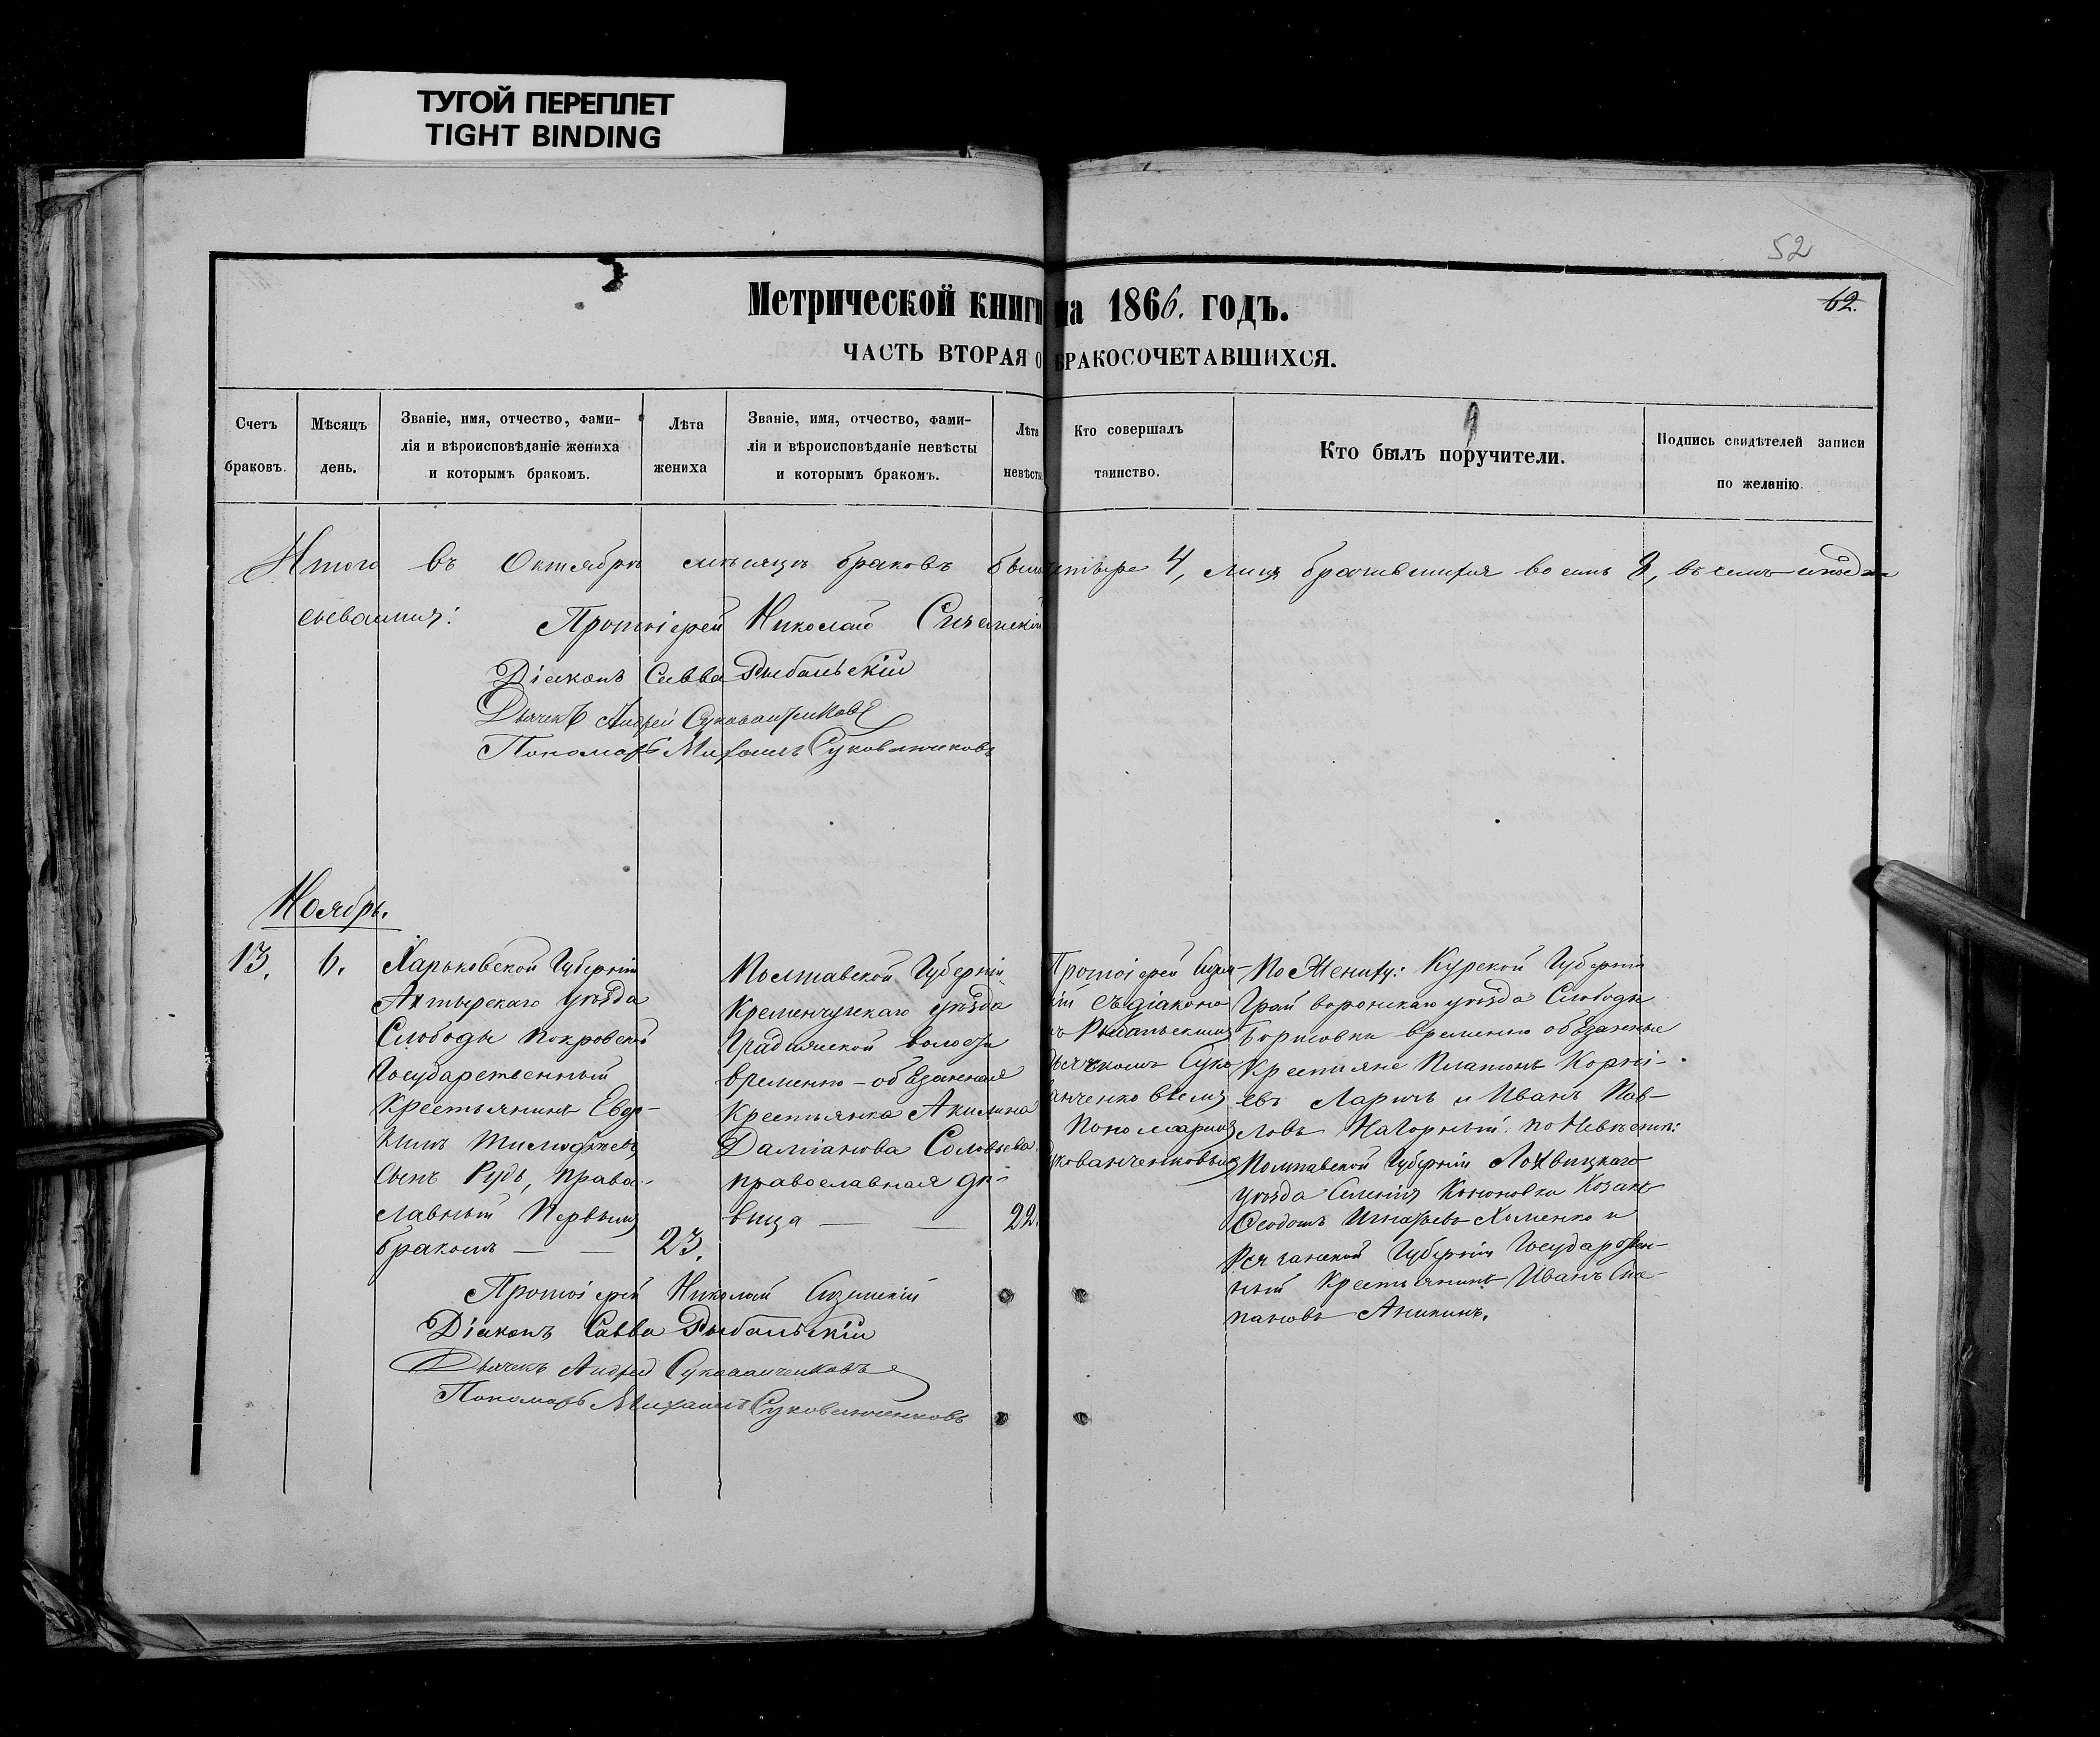 ТУГОЙ ПЕРЕПЛЕТ
TIGHT BINDING
52
62.
Метрической книги на 1866. годъ.
ЧАСТЬ ВТОРАЯ О БРАКОСОЧЕТАВШИХСЯ.
Счетъ
браковъ.
Мѣсяцъ
день.
Званіе, имя, отчество, фами-
лія и вѣроисповѣданіе жениха
и которымъ бракомъ.
Лѣта
жениха
Званіе, имя, отчество, фами-
лія и вѣроисповѣданіе невѣсты
и которымъ бракомъ.
Лѣта
невѣсты
Кто совершалъ
таинство.
Кто былъ поручители.
Подпись свидѣтелей записи
по желанію.
Итого въ Октябрѣ мѣсяцѣ браковъ было четыре 4, лицъ брачившихся восемь 8, въ семъ и подпи
суемся:
Протоіерей Николай
Діаконъ Савва Рыбальскій
Дьячекъ Андрей Сукованченковъ
Пономарь Михаилъ Сукованченковъ
Ноябрь.
13. 6.
Харьковской Губерніи
Ахтырскаго уѣзда
Слободы Покровской
Государственный
Крестьянинъ Евдо-
кимъ Тимофѣевъ
сынъ Рудь, право-
славный Первымъ
бракомъ — — 23.
Полтавской Губерніи
Кременчугскаго уѣзда
Градижской волости
временно-обязанная
крестьянка Акилина
Даміанова Соловьева
православная дѣ-
вица — — 22.
Протоіерей
кій съ діакono
мъ Рыбальскимъ
дьячкомъ Суко
ванченковымъ
Пономаремъ
Сукованченковымъ
По Жениху: Курской Губерніи
Грайворонскаго уѣзда Слободы
Борисовки временно обязанные
Крестьяне Платонъ Корні-
евъ Ларичъ и Иванъ Пав-
ловъ Нагорный. по Невѣстѣ:
Полтавской Губерніи Лохвицкаго
уѣзда Селенія Кононовки Козакъ
Феодотъ Игнатьевъ Хоменко и
Рязанской Губерніи Государствен-
ный Крестьянинъ Иванъ Сте-
пановъ Аникинъ.
Протоіерей Николай
Діаконъ Савва Рыбальскій
Дьячекъ Андрей Сукованченковъ
Пономарь Михаилъ Сукованченковъ